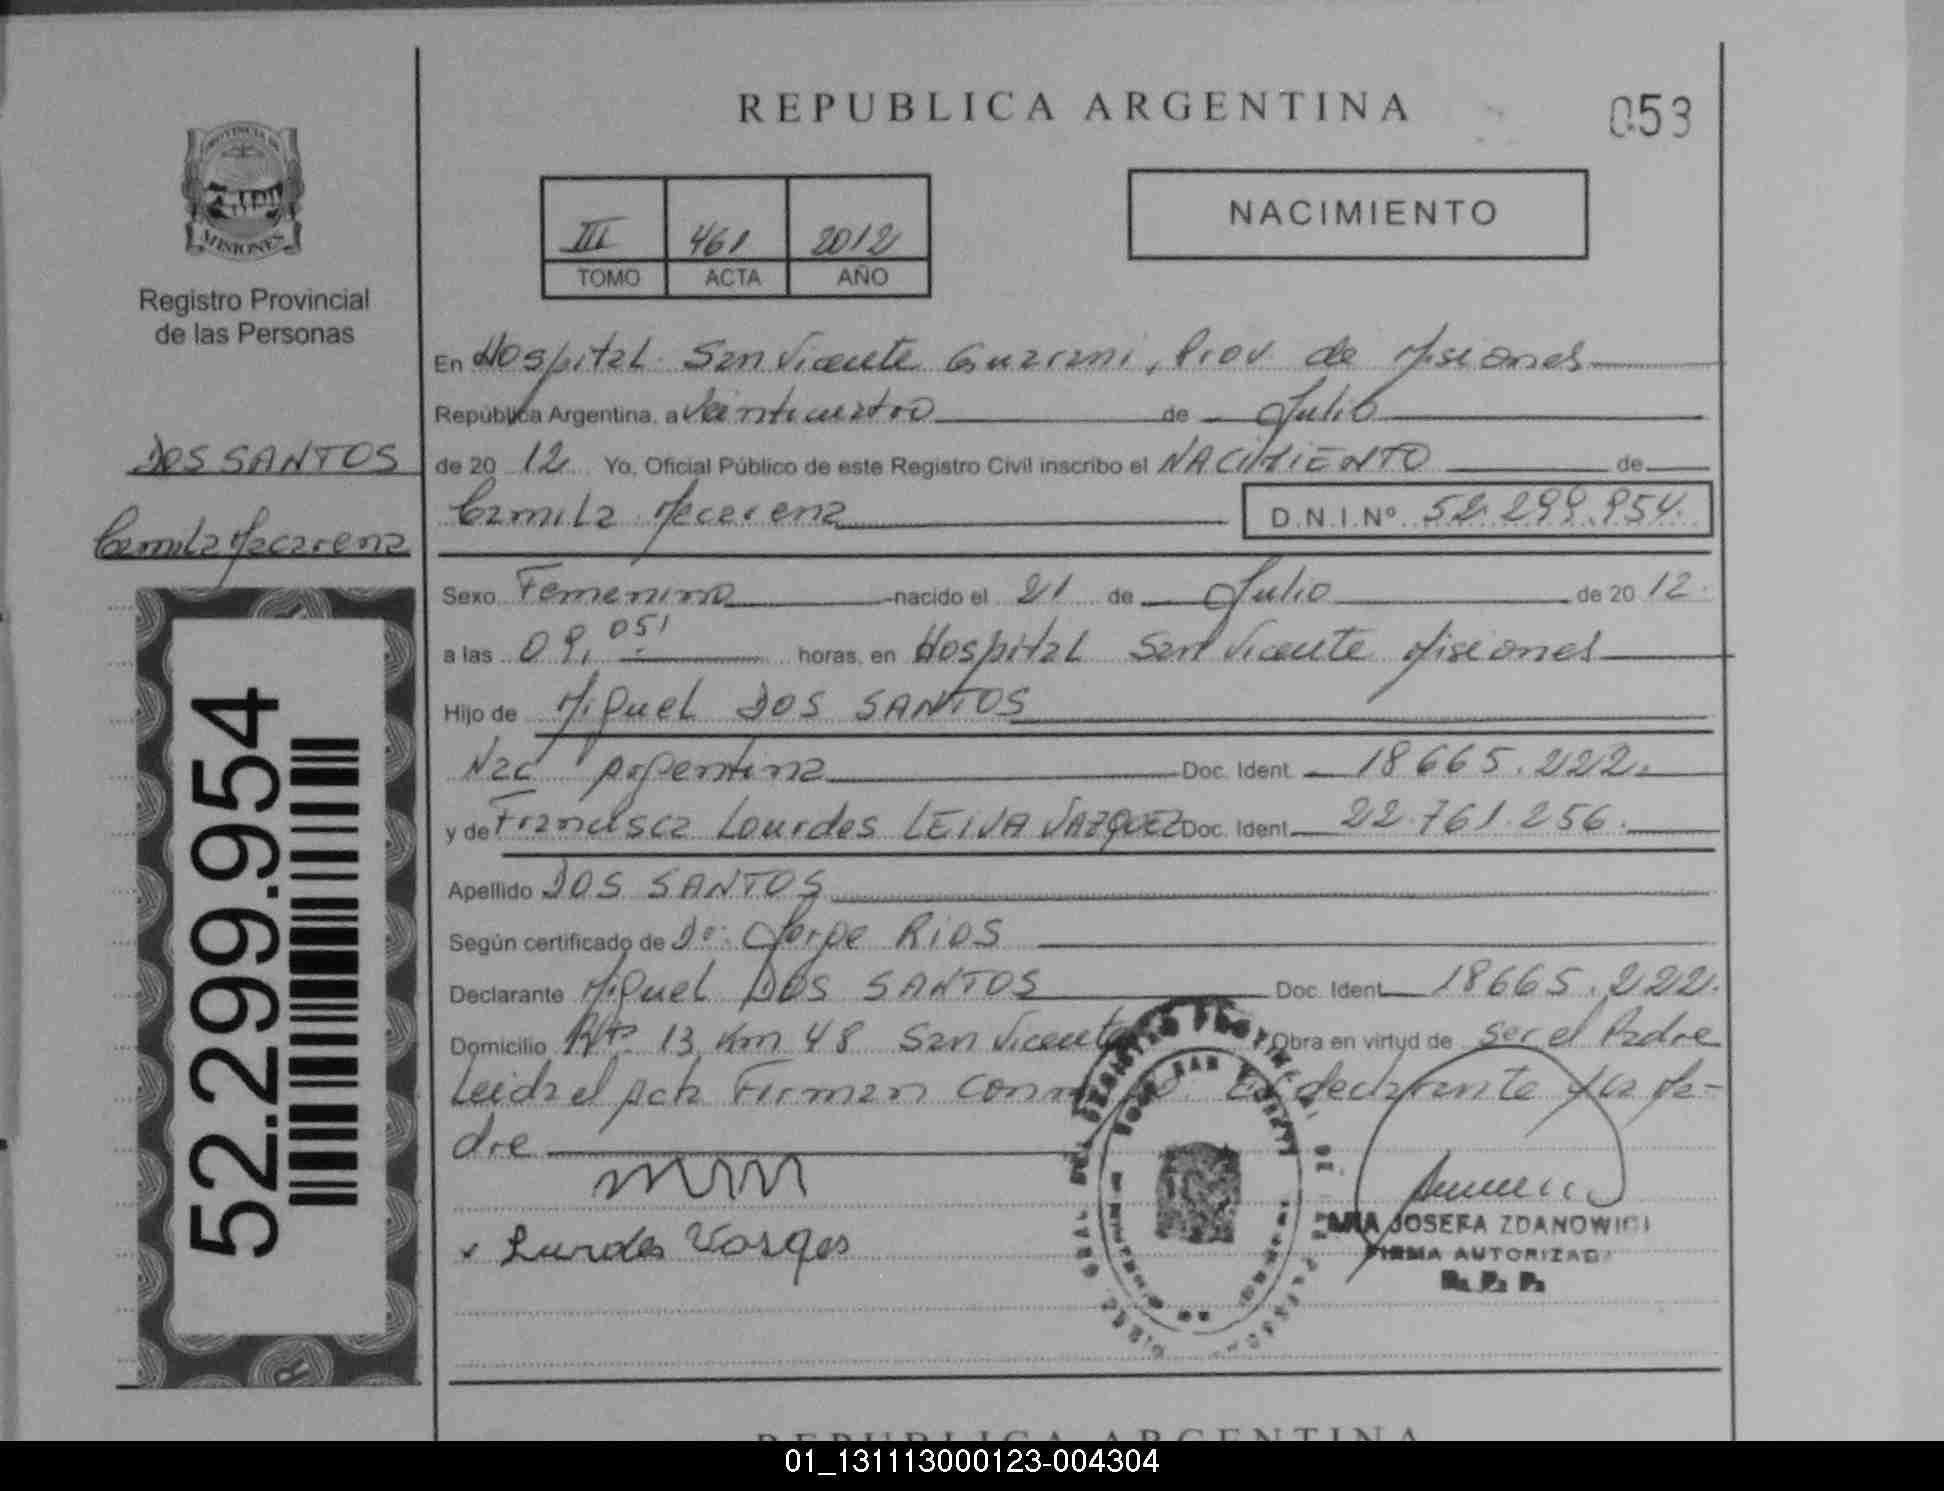 REPUBLICA ARGENTINA
053
PROVINCIA DE
MISIONES
Registro Provincial
de las Personas
III 461 2012
TOMO ACTA AÑO
NACIMIENTO
En Hospital San Vicente Guarani, Prov. de Misiones
República Argentina, a Veinticuatro de Julio
DOS SANTOS
de 20 12 Yo, Oficial Público de este Registro Civil inscribo el NACIMIENTO de
Camila Macarena
Camila Macarena D.N.I.Nº 52.299.954.
Sexo Femenino nacido el 21 de Julio de 20 12.
a las 09, 051 horas, en Hospital San Vicente Misiones
Hijo de Miguel DOS SANTOS
Nac Argentina Doc. Ident. 18665.222.
y de Francisca Lourdes LEIVA VAZQUEZ Doc. Ident. 22.761.256.
Apellido DOS SANTOS
Según certificado de Dr. Jorge RIOS
Declarante Miguel DOS SANTOS Doc. Ident. 18665.222.
Domicilio Rta 13 Km 48 San Vicente Obra en virtud de ser el Padre
Leida el Acta Firman El declarante y la Ma-
dre
52.299.954
JOSEFA ZDANOWICZ
FIRMA AUTORIZADA
R. P. P.
REPUBLICA ARGENTINA
01_131113000123-004304